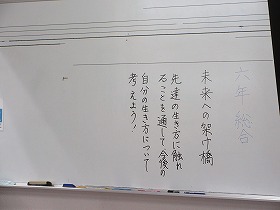 六年 総合
未来への架け橋
先達の生き方に触れ
ることを通して今後の
自分の生き方について
考えよう！